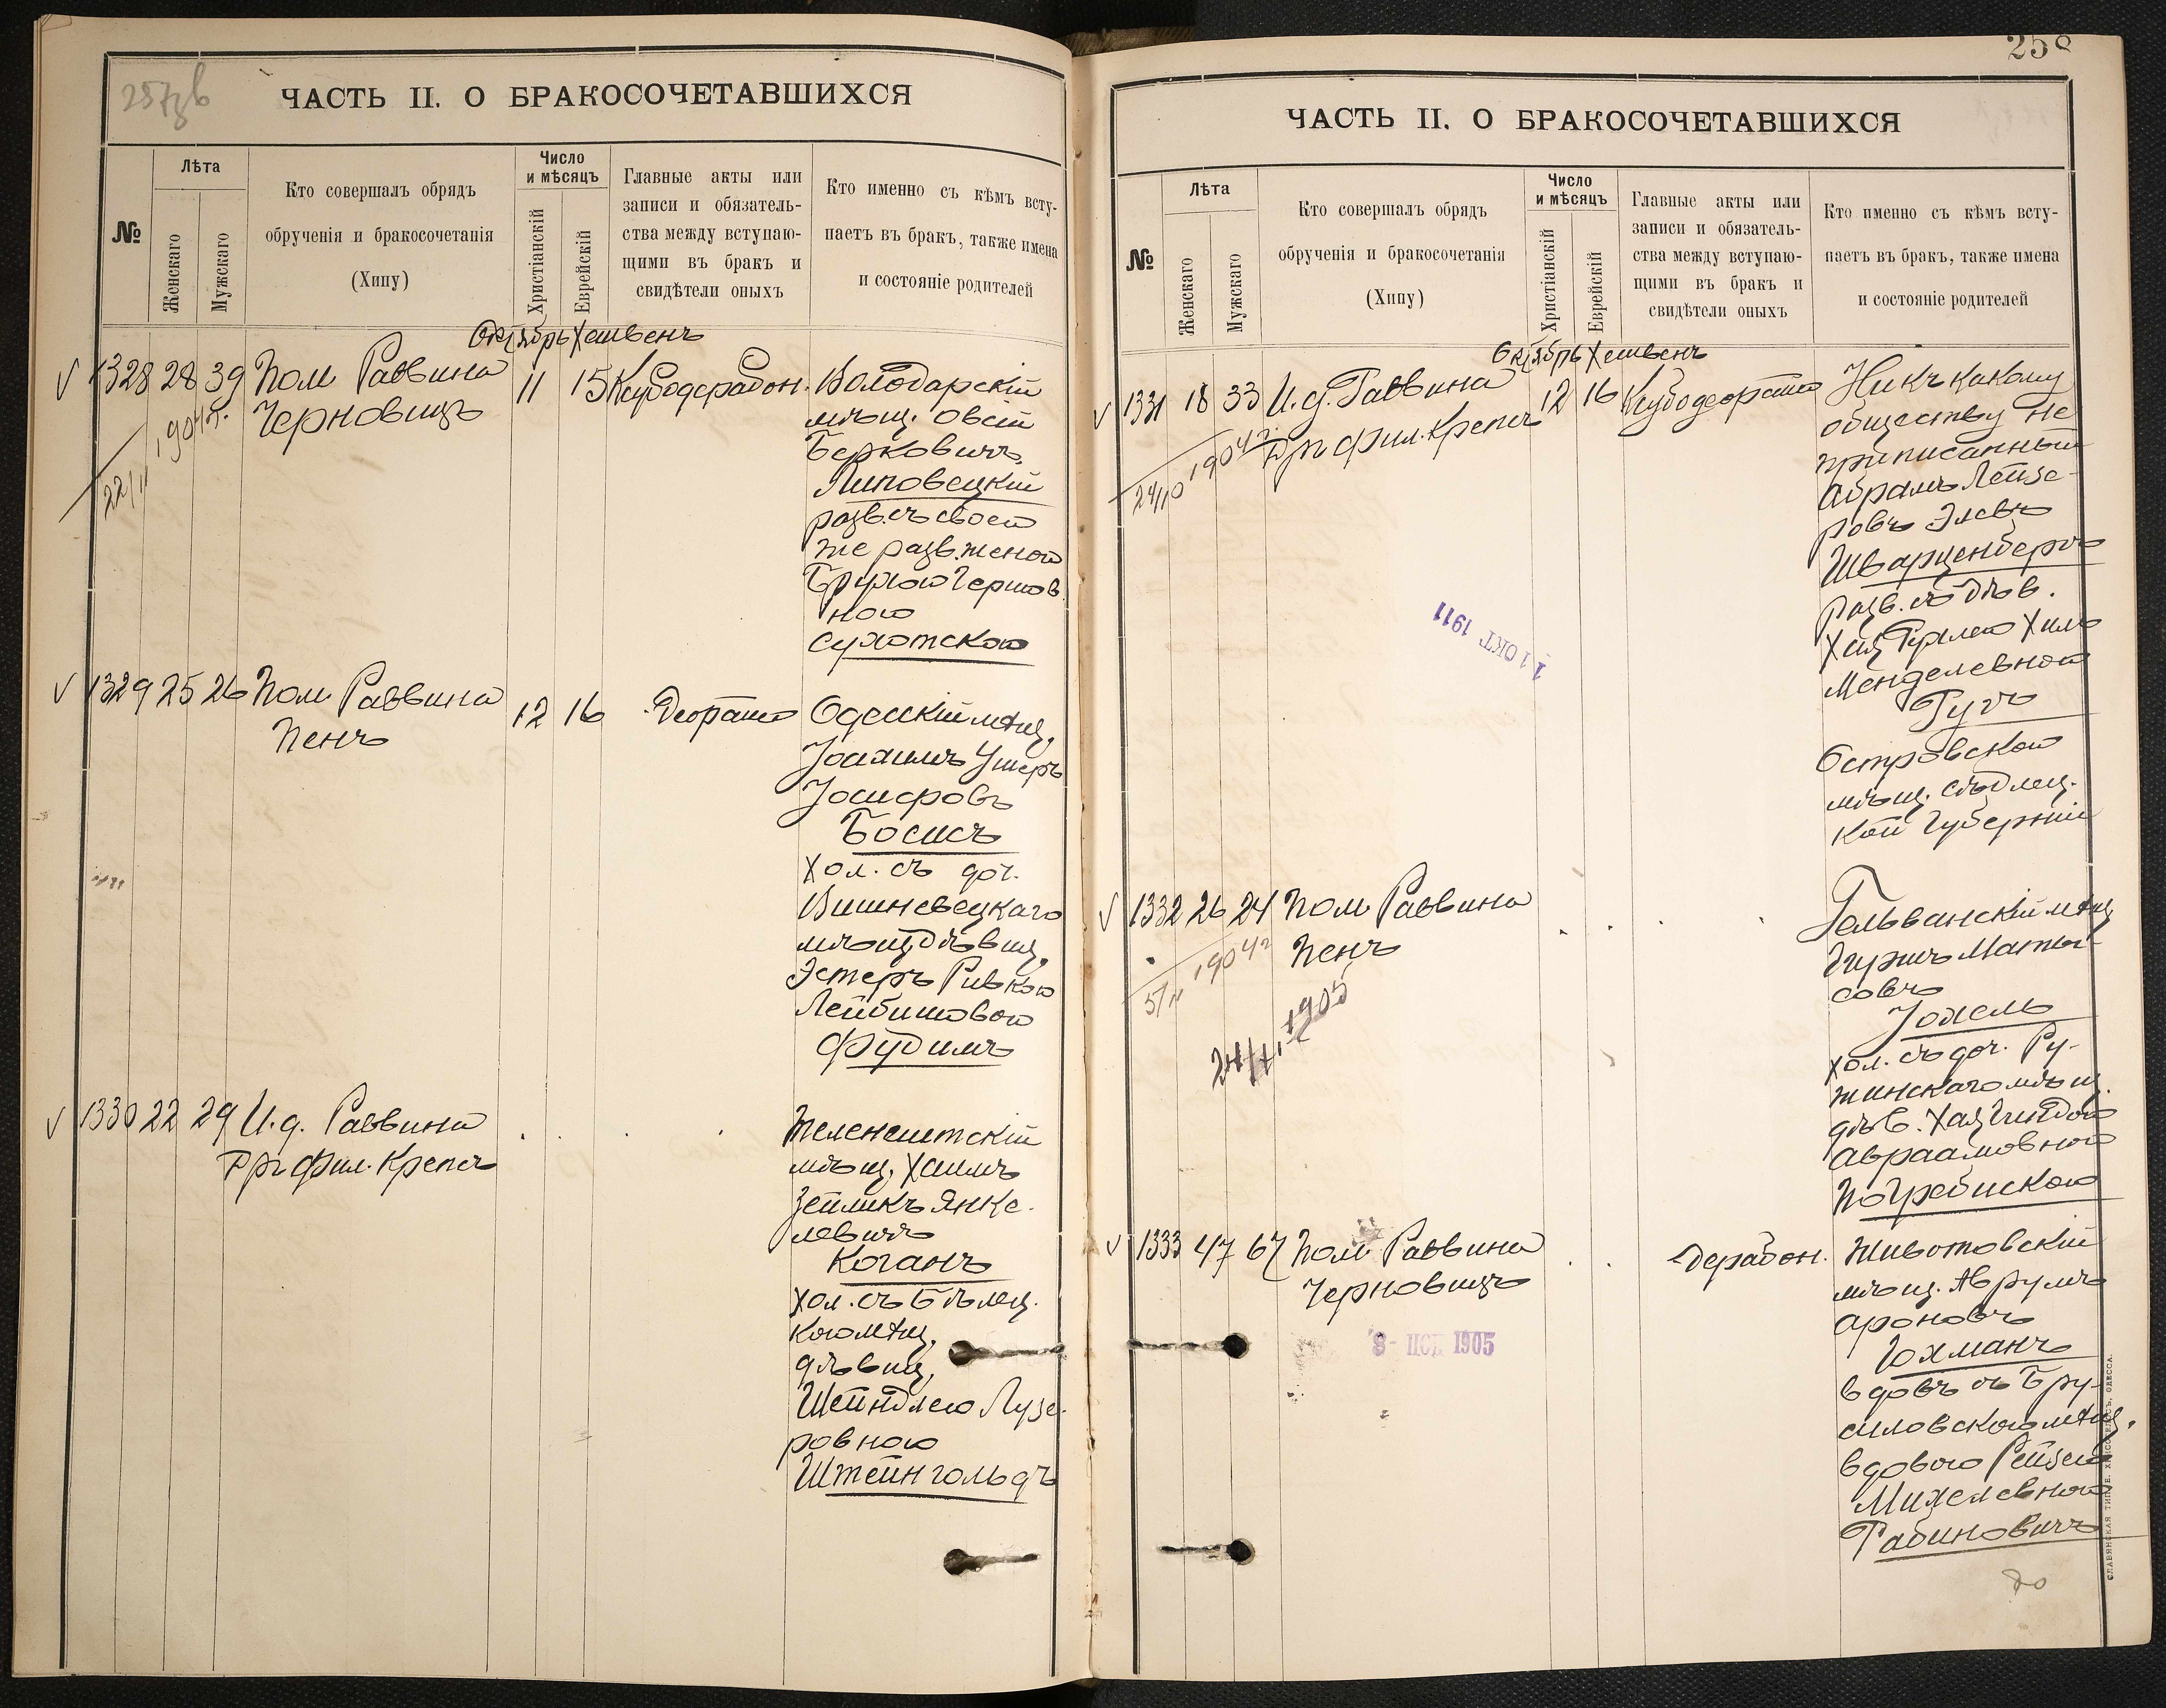 257об
ЧАСТЬ II. О БРАКОСОЧЕТАВШИХСЯ
№
Лѣта
Женскаго
Мужскаго
Кто совершалъ обрядъ
обрученія и бракосочетанія
(Хипу)
Число
и мѣсяцъ
Христіанскій
Еврейскій
Главные акты или
записи и обязатель-
ства между вступаю-
щими въ бракъ и
свидѣтели оныхъ
Кто именно съ кѣмъ всту-
паетъ въ бракъ, также имена
и состояніе родителей
Октябрь Хешвенъ
1328 28 39 Пом Раввина 11 15 Володарскій
Черновицъ
1904 г.
22/11
мѣщ. Овсій
Берковичъ
Липовецкій
разв. съ своей
же разв. женой
Брухою Гершов
ною
Сухотскою
1329 25 26 Пом Раввина 12 16 Одесскій мѣщ.
Пенъ
Іоахимъ Ушеръ
Іосифовъ
Босисъ
хол. съ доч.
Вишневецкаго
мѣщ дѣвиц.
Эстеръ Ривкою
Лейбишовою
Фудимъ
1330 22 29 И.д. Раввина
Дръ Фил. Крепсъ
Теленештскій
мѣщ. Хаимъ
Зейликъ Янке-
левичъ
Коганъ
хол. съ Бѣлец.
кою мѣщ.
дѣвиц.
Шейндлею Лузе-
ровною
Штейнгольдъ
258
ЧАСТЬ II. О БРАКОСОЧЕТАВШИХСЯ
№
Лѣта
Женскаго
Мужскаго
Кто совершалъ обрядъ
обрученія и бракосочетанія
(Хипу)
Число
и мѣсяцъ
Христіанскій
Еврейскій
Главные акты или
записи и обязатель-
ства между вступаю-
щими въ бракъ и
свидѣтели оныхъ
Кто именно съ кѣмъ всту-
паетъ въ бракъ, также имена
и состояніе родителей
Октябрь Хешвенъ
1331 18 33 И.д. Раввина 12 16 Ни къ какому
Дръ Фил. Крепсъ
1904 г.
24/10
обществу не
приписанный
Абрамъ Лейзе-
ровъ Элевъ
Шварценбергъ
разв. съ дѣв.
Менделевною
Гутъ
Островской
мѣщ. Сѣдлец-
кой губерніи
11 ОКТ 1911
1332 26 24 Пом Раввина
Пенъ
1904 г.
5/11
1905
Гельванскій мѣщ
Гиршъ Маты-
совъ
Іохель
хол. съ доч. Ру-
жинскаго мѣщ.
дѣв. Хая Гитлою
Авраамовною
Погребискою
1333 47 67 Пом Раввина
Черновицъ
1905
Животовскій
мѣщ. Аврумъ
Ароновъ
Юхманъ
вдовъ съ Бру-
силовскою мѣщ.
вдовою Рейзею
Михелевною
Рабиновичъ
СЛАВЯНСКАЯ ТИП. Е. ХРИСОГЕЛОСЪ, ОДЕССА.